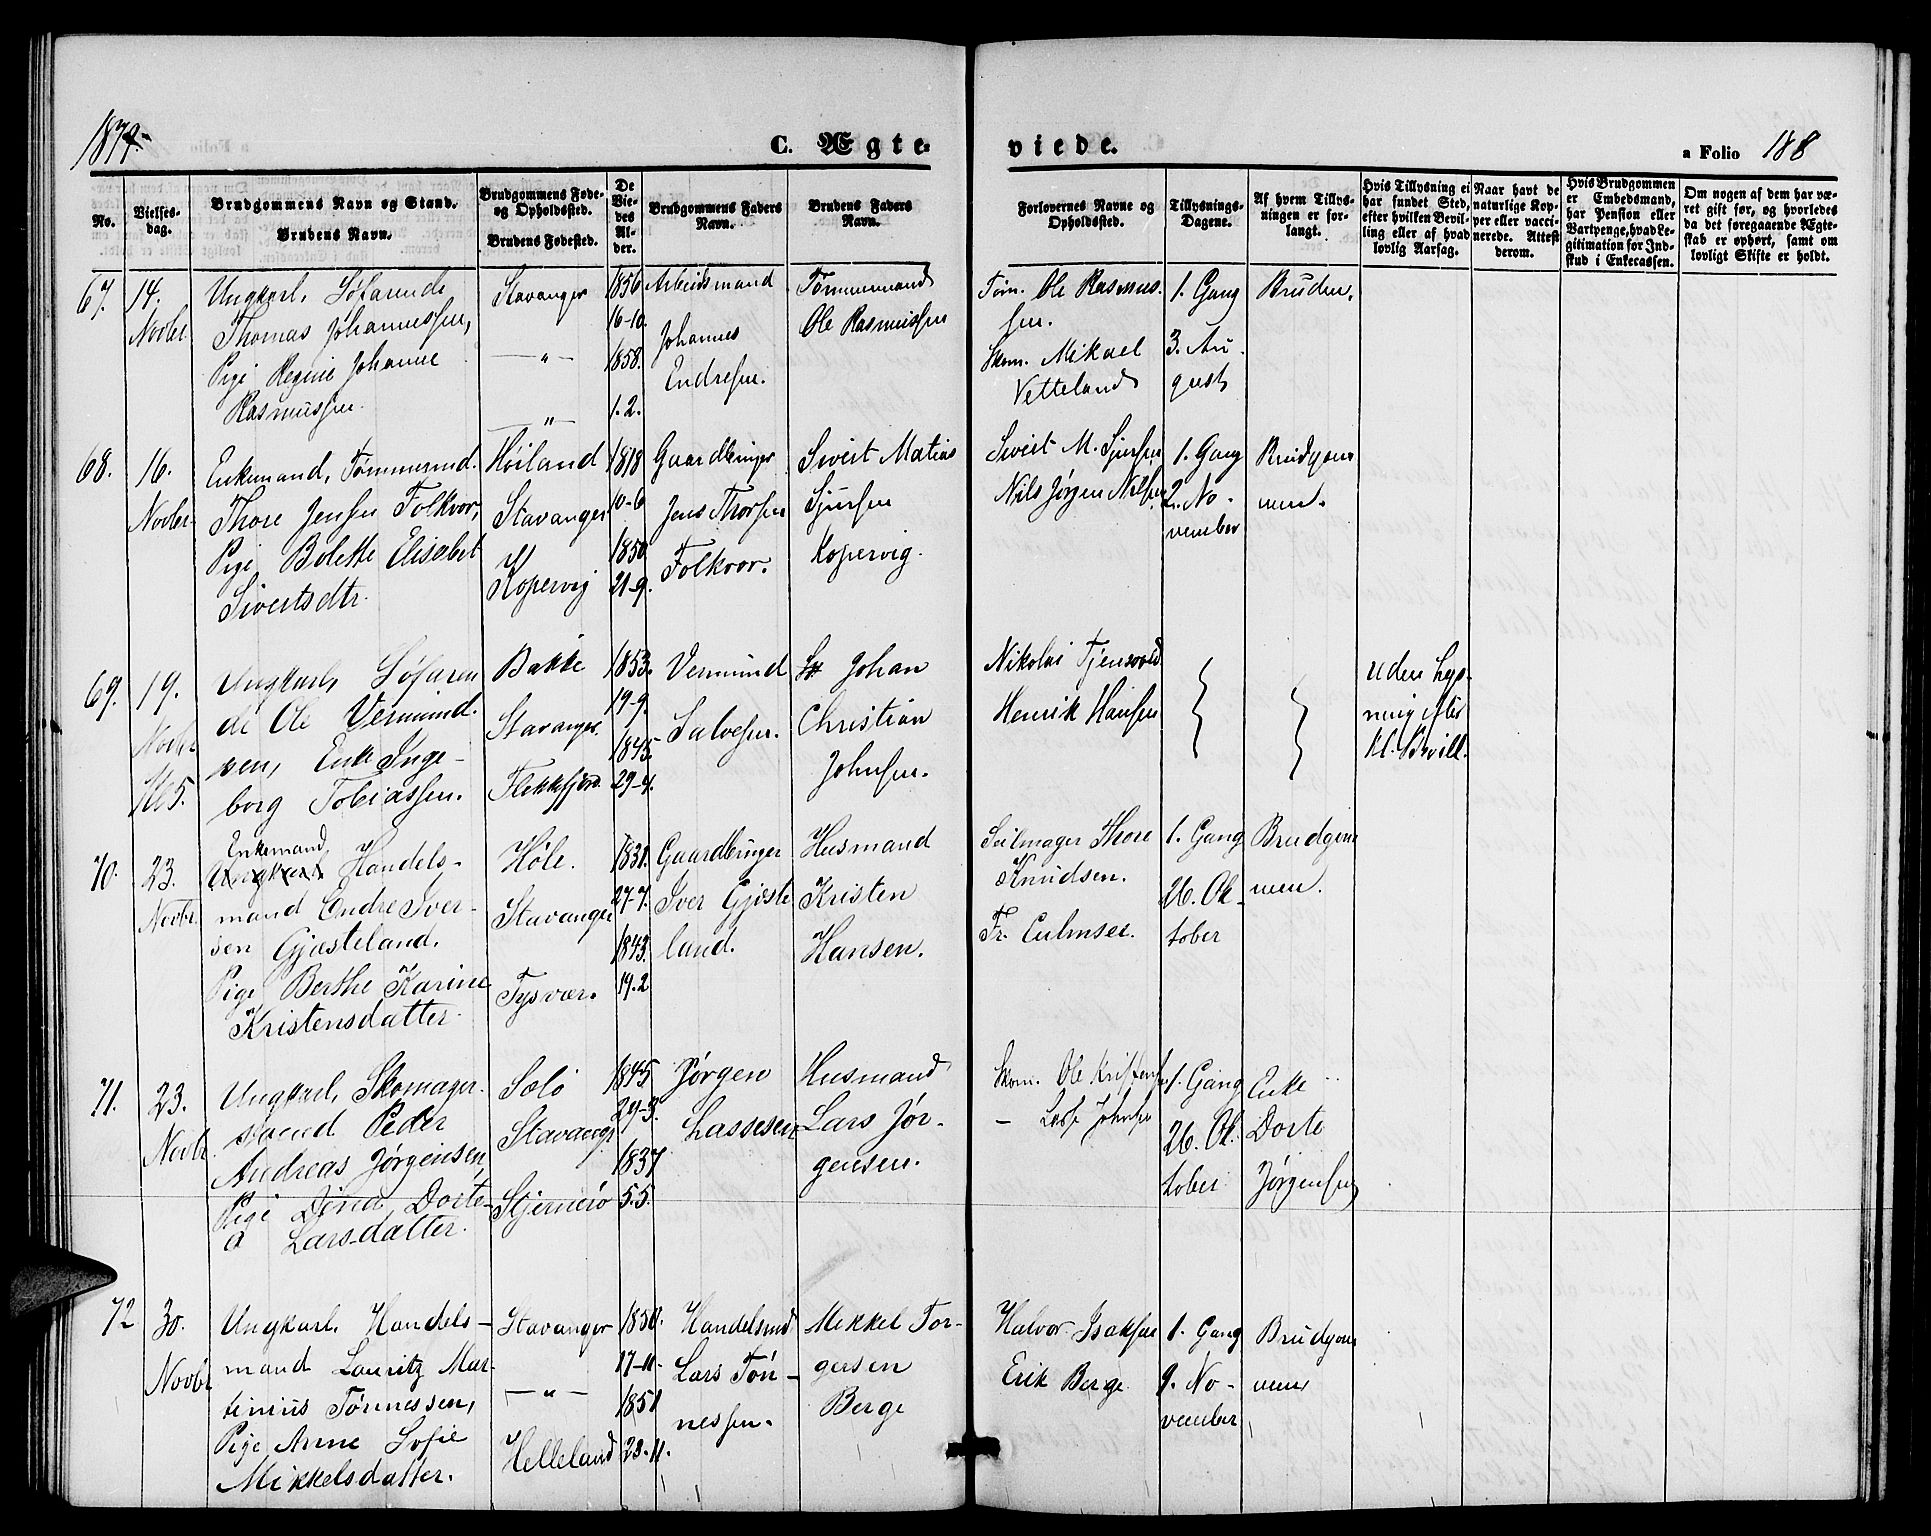 1879.
C. Ægte-
viede.
a Folio 188
No.
Vielses-
dag.
Brudgommens Navn og Stand.
Brudens Navn.
Brudgommens Føde-
og Opholdssted.
Brudens Fødested.
De
Vie-
des
Al-
der.
Brudgommens Faders
Navn.
Brudens Faders
Navn.
Forlovernes Navne og
Opholdssted.
Tillysnings-
Dagene.
Af hvem Tillys-
ningen er for-
langt.
Hvis Tillysning ei
har fundet Sted,
efter hvilken Bevil-
ling eller af hvad
lovlig Aarsag.
Naar havt de
naturlige Kop-
per eller vacci-
nerede. Attest
derom.
Hvis Brudgommen
er Embedsmand,
har Pension eller
Vartpenge, hvad Le-
gitimation for Ind-
skud i Enkecassen.
Om nogen af dem har væ-
ret gift før, og hvorledes
da det foregaaende Ægte-
skab er ophørt, samt om
lovligt Skifte er holdt.
67.
14.
Novbr
Ungkarl, Søfarende
Thomas Johannessen,
Pige Regine Johanne
Rasmussen.
Stavanger
— " —
— " —
1856
16-10.
1858.
1.2.
Arbeidsmand
Johannes
Endresen.
Tømmermand
Ole Rasmussen
Tøm. Ole Rasmus-
sen.
Skom. Mikael
Vetteland
1. Gang
3. Au-
gust
Bruden.
68.
16.
Novbr
Enkemand, Tømmermd.
Thore Jensen Folkvor,
Pige Bolette Elisabet
Sivertsdtr.
Høiland
Stavanger
Kopervig
1818
10-6
1850
21-9.
Gaardbruger
Jens Thorsen
Folkvor.
Sivert Matias
Sjursen
Kopervig.
Sivert M. Sjursen
Nils Jørgen Nilsen
1. Gang
2. No-
vember
Brudgom-
men.
69.
19.
Novbr
Kl 5.
Ungkarl, Søfaren
de Ole Vermund-
sen, Enke Inge-
borg Tobiassen.
Bakke
Stavanger.
Flekkefjord.
1853.
19-9.
1845
29-4.
Vermund
Salvesen.
Johan
Christian
Johnsen.
Nikolai Tjensvold
Henrik Hansen
uden Lys-
ning efter
Kl. Bevill.
70.
23.
Novbr
Enkemand,
Ungkarl Handels-
mand Endre Iver-
sen Gjæsteland.
Pige Berthe Karine
Kristensdatter.
Høle.
Stavanger
Tysvær.
1831.
27-7.
1843.
19.2
Gaardbruger
Iver Gjæste
land.
Husmand
Kristen
Hansen.
Seilmager Thore
Knudsen.
Fr. Culmsee.
1. Gang
26. Ok-
tober
Brudgom
men.
71.
23.
Novbr.
Ungkarl, Skomager-
svend Peder
Andreas Jørgensen,
Pige Dina Dorte-
a Larsdatter.
Solø
Stavanger
Stjernerø
1845
29-3.
1837
5.5.
Jørgen
Lassesen
Husmand
Lars Jør-
gensen.
Skom. Ole Kristensen
— Lasse Johnsen
1. Gang
26. Ok-
tober
Enke
Dorte
Jørgensen
72
30.
Novbr
Ungkarl. Handels-
mand Lauritz Mar-
tinius Tønnessen,
Pige Anne Sofie
Mikkelsdatter.
Stavanger
— " —
Helleland
1850.
17-11.
1851
23-11.
Handelsmd
Lars Tøn-
nessen.
Mikkel Tor-
gersen
Berge
Halvor Isaksen
Erik Berge
1. Gang
9. No-
vember
Brudgom
men